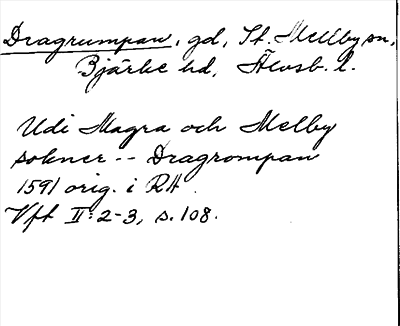 Dragrumpan, gd, St. Mellby sn,
Bjärke hd, Älvsb. l.
Udi Magra och Melby
sokner -- Dragrompan
1591 orig. i RA.
Vft II: 2-3, s. 108.